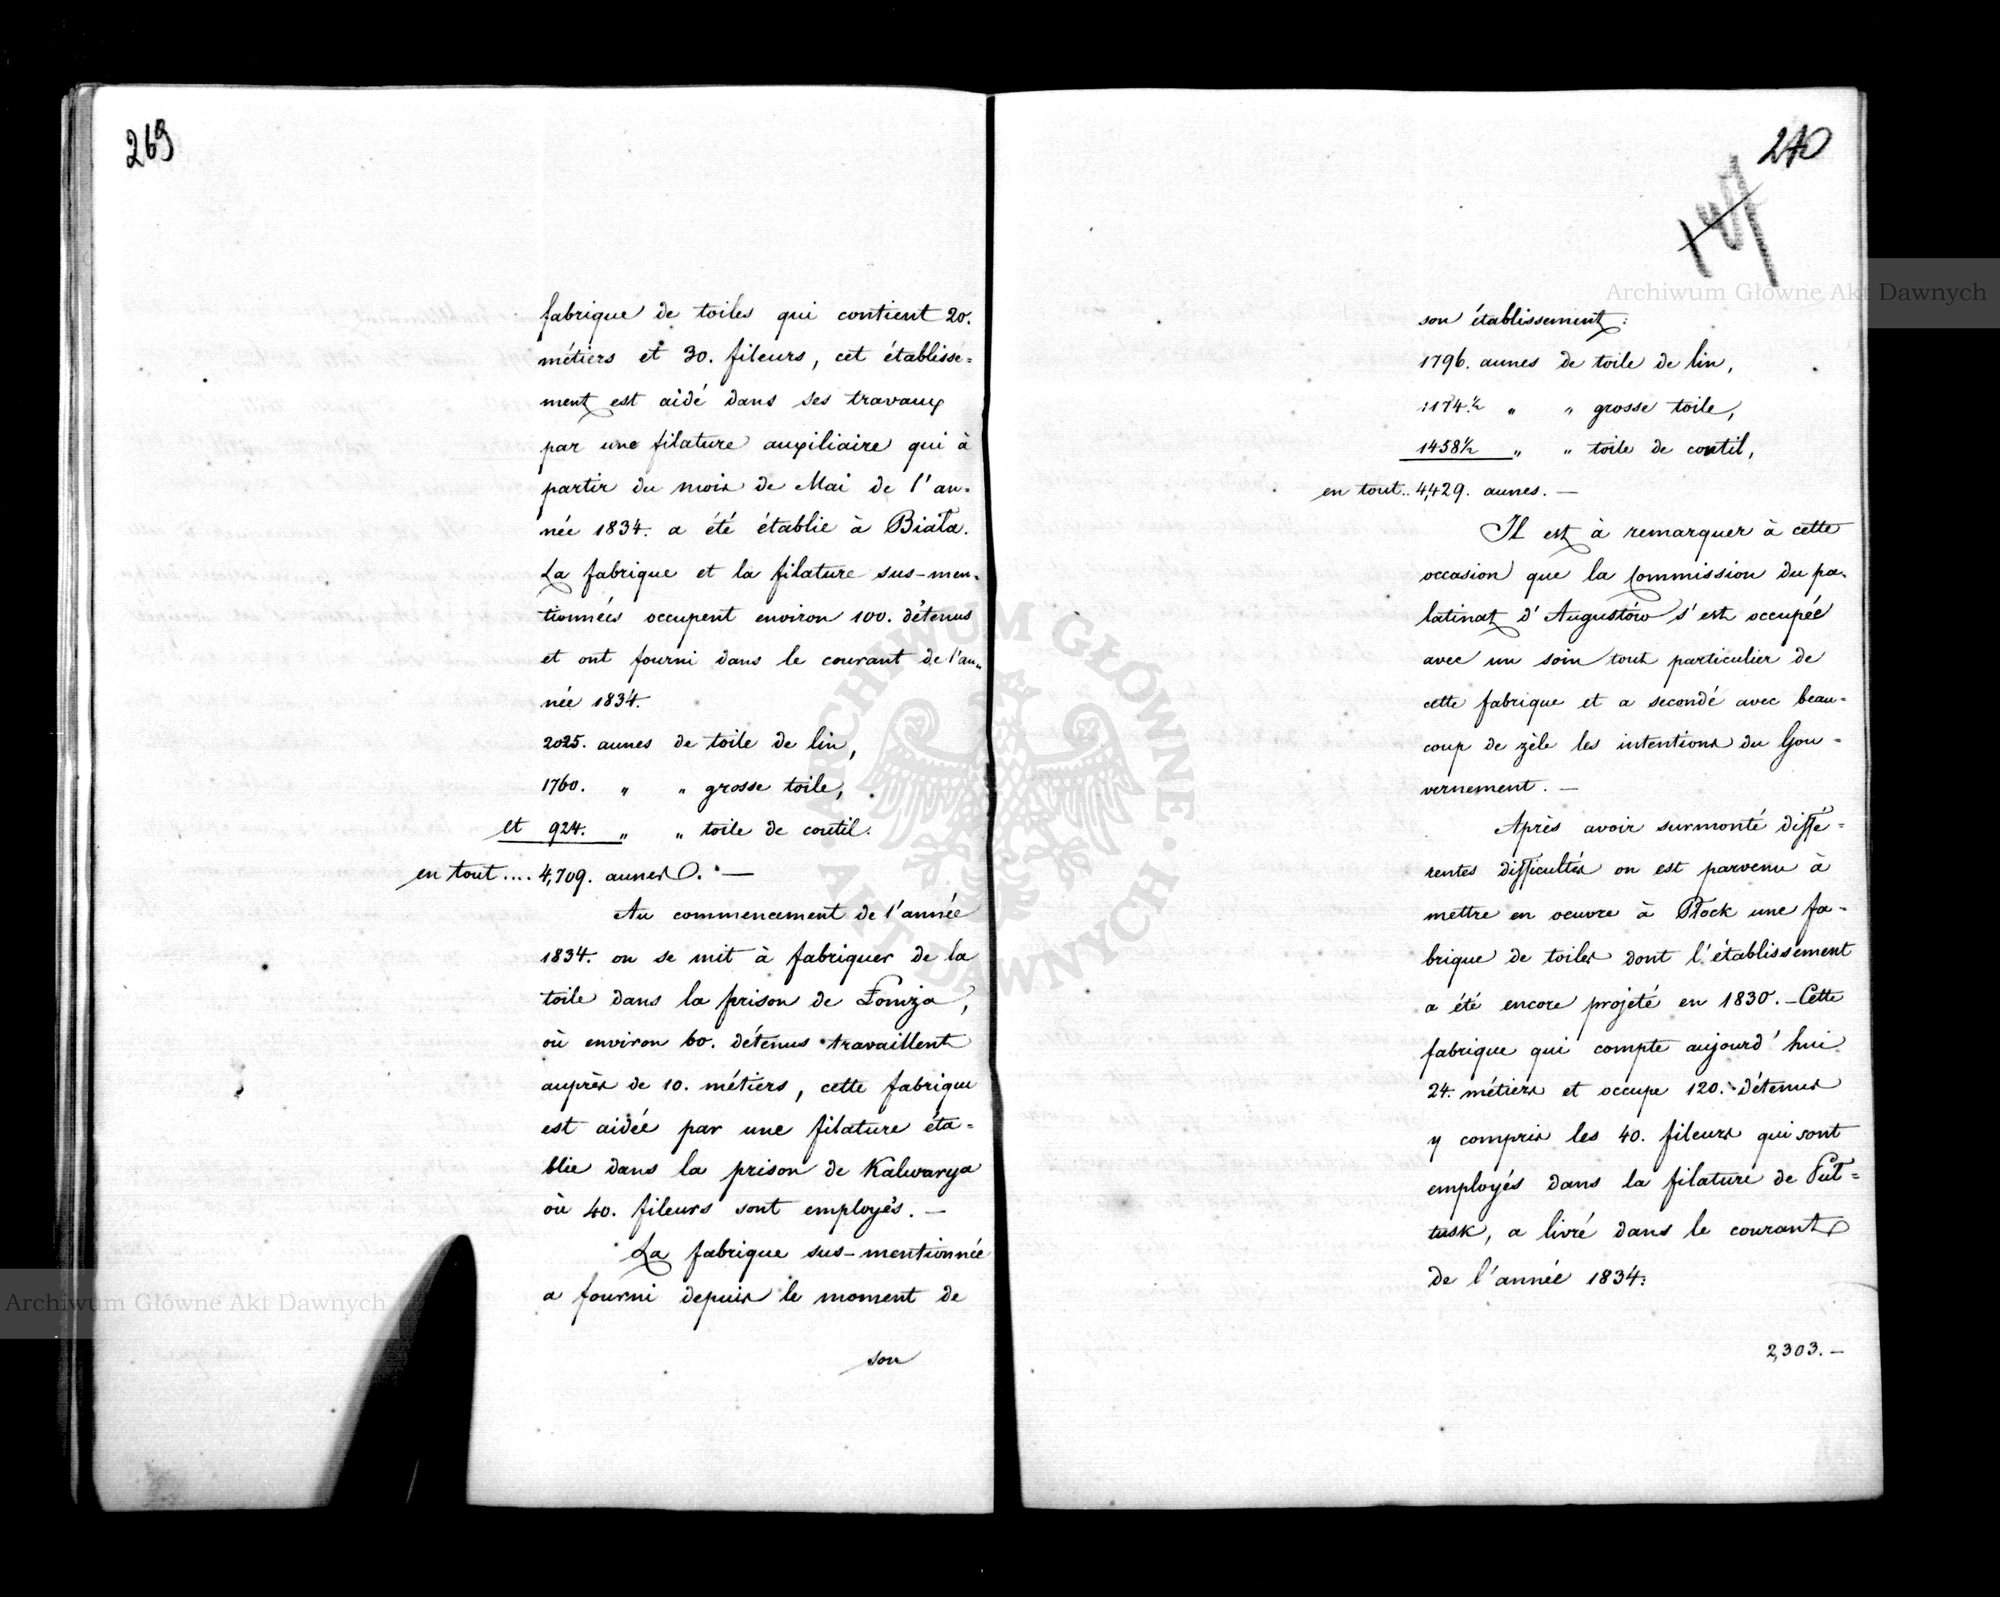 269
fabrique de toiles qui contient 20.
métiers et 30. fileurs, cet établisse=
ment est aidé dans ses travaux
par une filature auxiliaire qui à
partir du mois de Mai de l'an=
née 1834. a été établie à Biała.
La fabrique et la filature sus-men=
tionnées occupent environ 100. détenus
et ont fourni dans le courant de l'an=
née 1834.
2025. aunes de toile de lin,
1760. " " grosse toile,
et 924. " " toile de coutil.
en tout.... 4,709. aunes. —
Au commencement de l'année
1834. on se mit à fabriquer de la
toile dans la prison de Łomza,
où environ 60. détenus travaillent
auprès de 10. métiers, cette fabrique
est aidée par une filature éta=
blie dans la prison de Kalwarya
où 40. fileurs sont employés. —
La fabrique sus-mentionnée
a fourni depuis le moment de
son
270
son établissement:
1796. aunes de toile de lin,
1174.½ " " grosse toile,
1458½ " " toile de coutil,
en tout.. 4,429. aunes. —
Il est à remarquer à cette
occasion que la Commission du pa=
latinat d'Augustów s'est occupée
avec un soin tout particulier de
cette fabrique et a secondé avec beau=
coup de zèle les intentions du Gou=
vernement. —
Après avoir surmonté diffé=
rentes difficultés on est parvenu à
mettre en oeuvre à Płock une fa=
brique de toiles dont l'établissement
a été encore projeté en 1830. — Cette
fabrique qui compte aujourd'hui
24. métiers et occupe 120. détenus
y compris les 40. fileurs qui sont
employés dans la filature de Puł=
tusk, a livré dans le courant
de l'année 1834:
2,303. —
Archiwum Główne Akt Dawnych
Archiwum Główne Akt Dawnych
ARCHIWUM GŁÓWNE AKT DAWNYCH